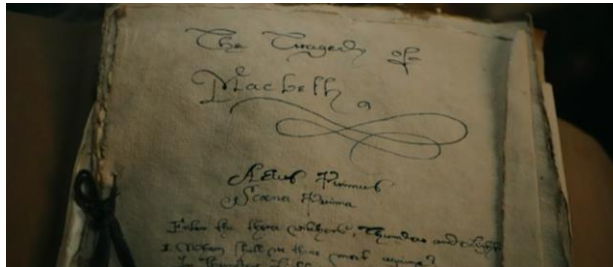 The Tragedy of
Macbeth
Actus Primus
Scæna Prima
Enter the three witches, Thunder and
1 shall we three meet againe?
In Thunder